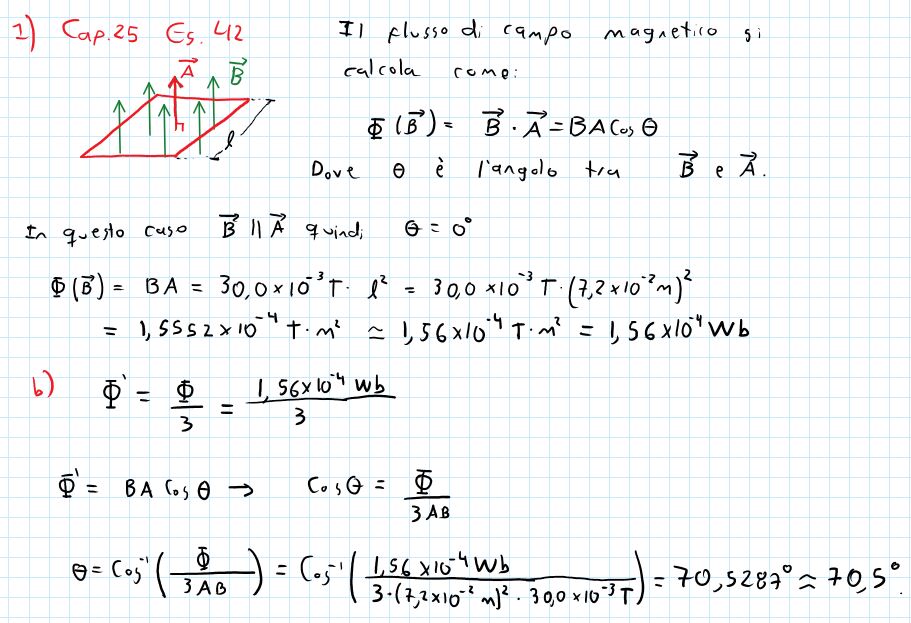 1) Cap. 25 Es. 42
Il flusso di campo magnetico si
calcola come:
A⃗ B⃗
l
Φ(B⃗) = B⃗ · A⃗ = BA Cos θ
Dove θ è l'angolo tra B⃗ e A⃗.
In questo caso B⃗ || A⃗ quindi θ = 0°
Φ(B⃗) = BA = 30,0 × 10⁻³ T · l² = 30,0 × 10⁻³ T · (7,2 × 10⁻² m)²
= 1,5552 × 10⁻⁴ T · m² ≃ 1,56 × 10⁻⁴ T · m² = 1,56 × 10⁻⁴ Wb
b) Φ' = Φ/3 = 1,56 × 10⁻⁴ Wb/3
Φ' = BA Cos θ → Cos θ = Φ/3AB
θ = Cos⁻¹(Φ/3AB) = Cos⁻¹(1,56 × 10⁻⁴ Wb/3·(7,2 × 10⁻² m)² · 30,0 × 10⁻³ T) = 70,5287° ≈ 70,5°.